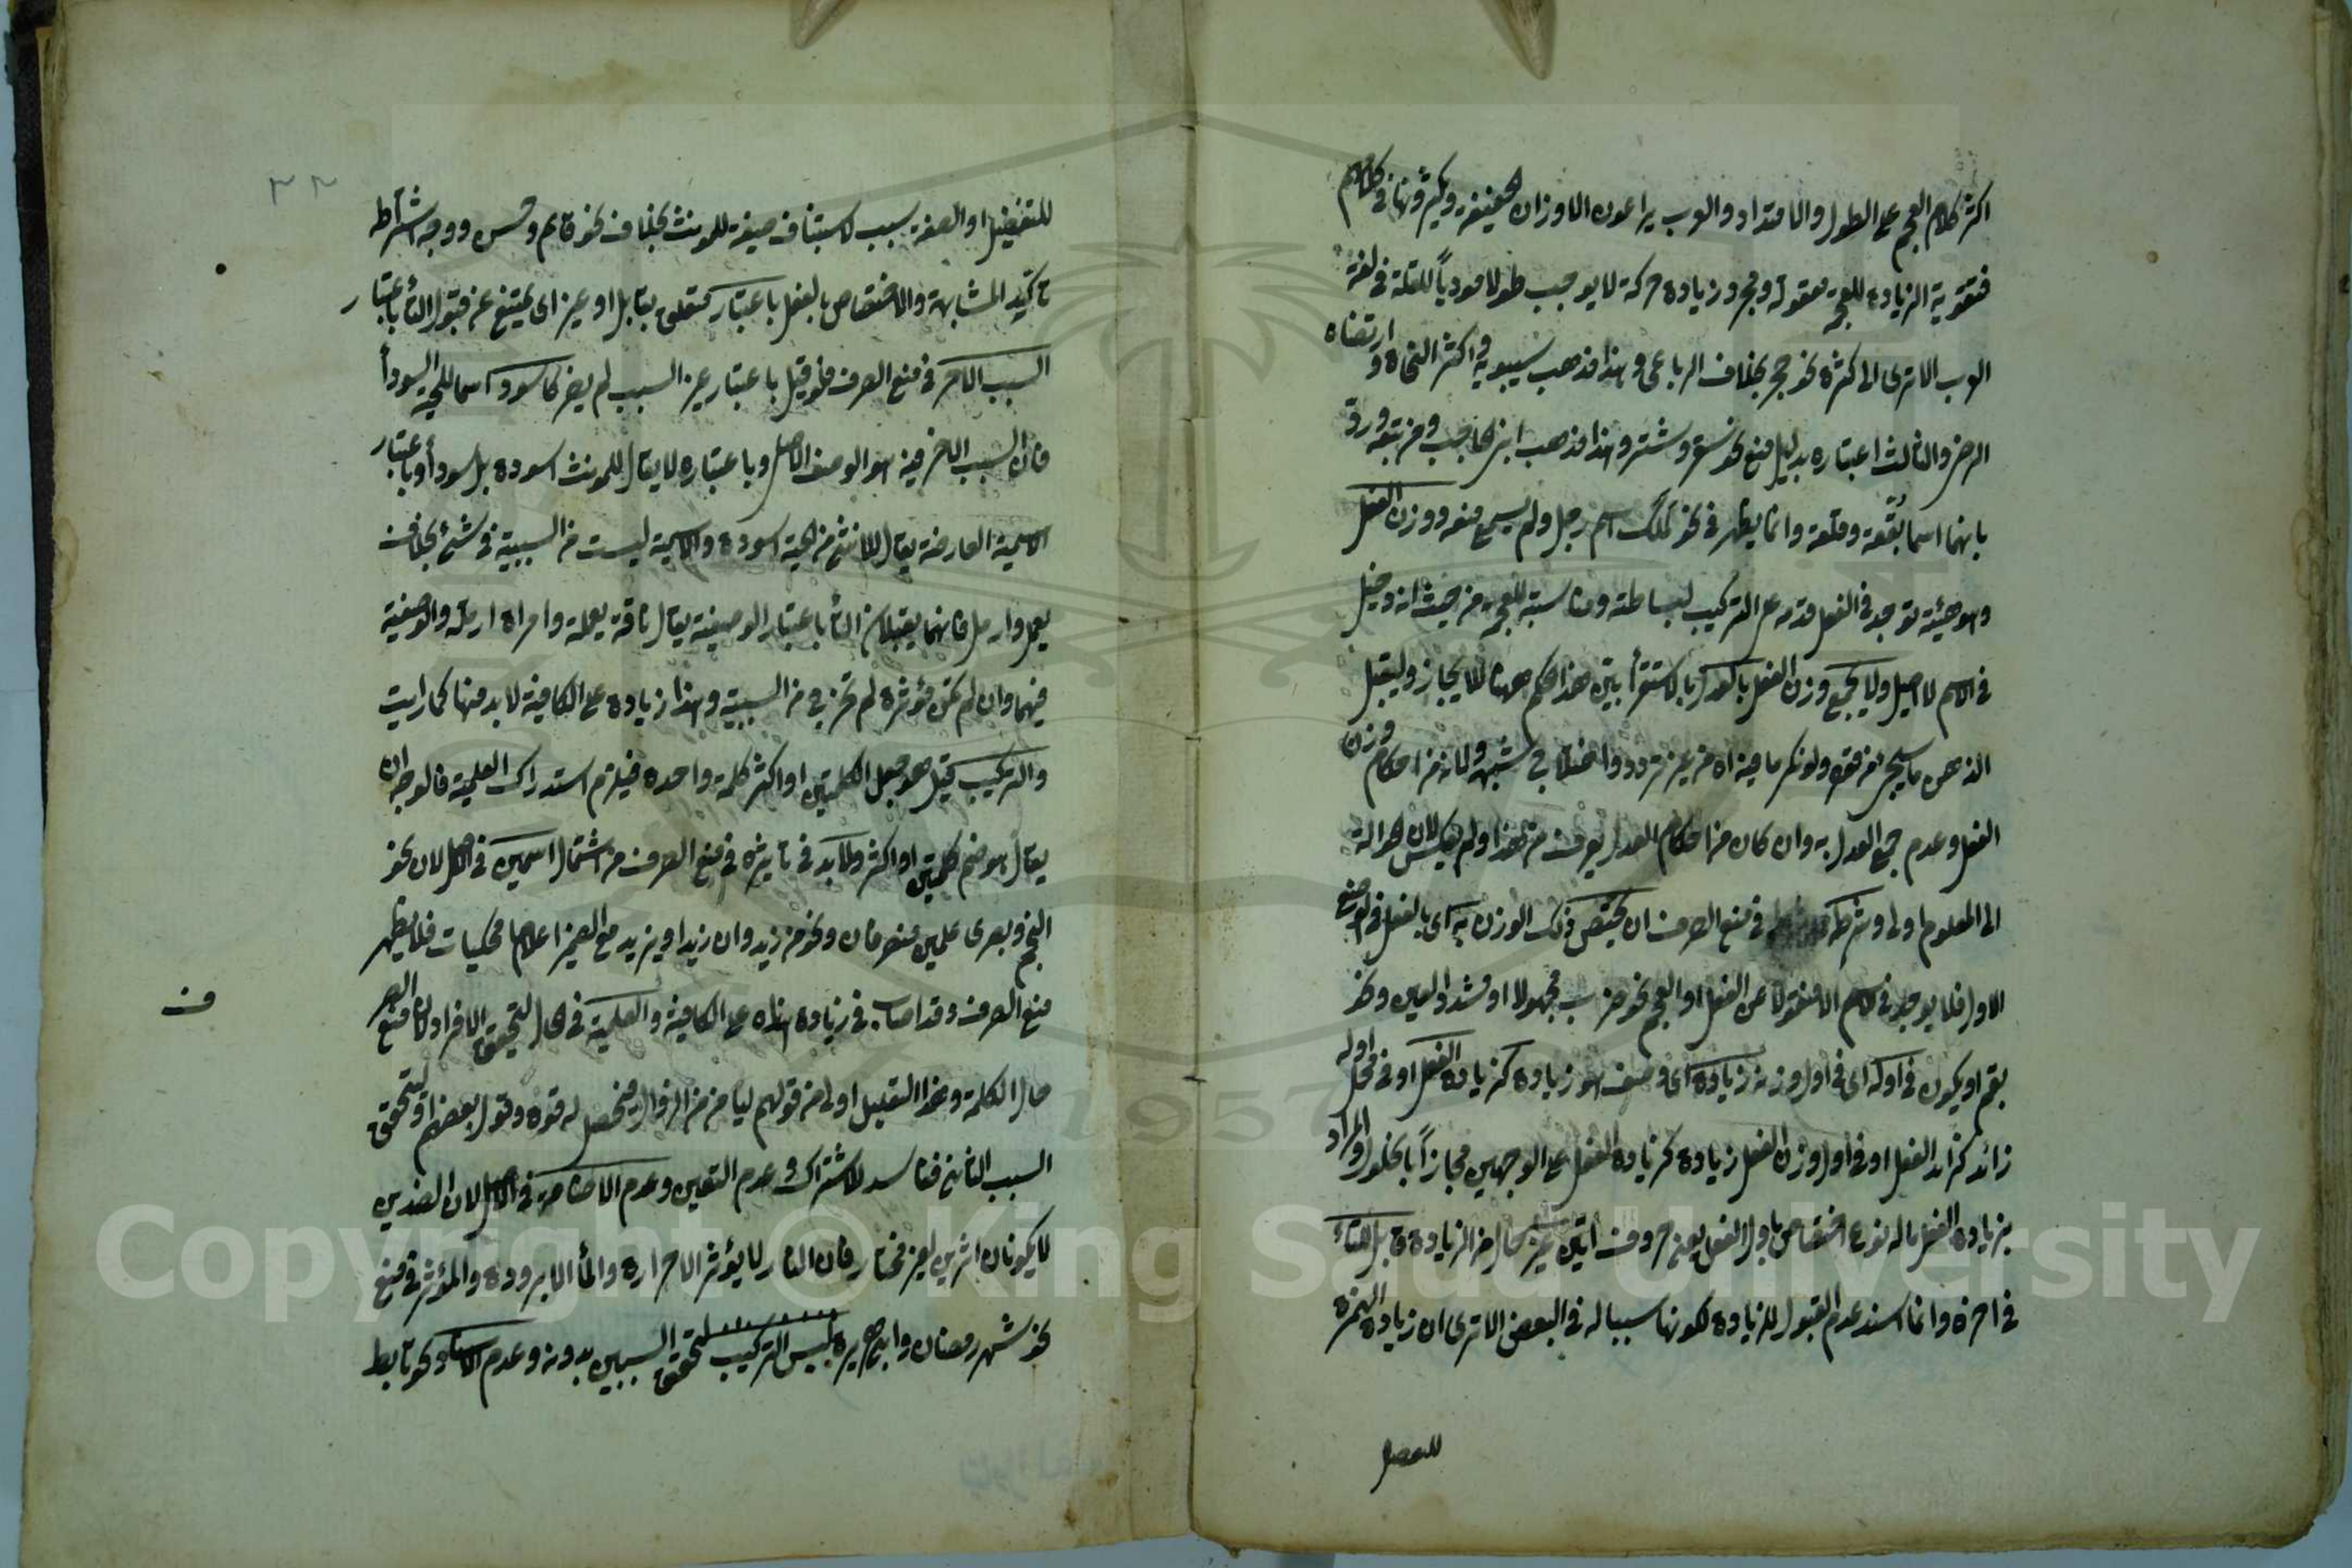 اكثر كلام العجم على الطول والامتداد والعرب يراعون الاوزان الخفيفة ويكثرونها في كلامهم
فتقوية الزيادة للعجمة معقولة ومجرد زيادة حركة لا يوجب طولا موديا للثقلة في لغة
العرب الا ترى الى كثرة نحو حجر بخلاف الرباعى وهذا مذهب سيبويه واكثر النحاة وارتضاه
الرضى والثالث اعتباره بدليل منع نحو سقر وشتر وهذا مذهب ابن الحاجب ومن تبعه ورد
بانهما اسما بقعة وقلعة وانما يظهر في نحو لمك اسم رجل ولم يسمع منعه ووزن الفعل
وهو هيئة توجد في الفعل قدمه على التركيب لبساطته ومناسبته للعجمة من حيث انه دخيل
في الاسم لا اصيل ولا يجمع وزن الفعل بالعدل بالاستقراء بين هذا الحكم ههنا للايجاز وليقبل
الذهن ما سيجئ من قوله ولو نكر ما فيه اه من غير تردد واختلاج شبهه ولانه من احكام وزن
الفعل وعدم جمع العدل به وان كان من احكام العدل يعرف من هذا ولم يعكس لان الحوالة
الى المعلوم اولى وشرطه في منع الصرف ان يختص ذلك الوزن به اى بالفعل في الوضع
الاول فلا يوجد في الاسم الا منقولا عن الفعل او العجم نحو ضرب مجهولا او مشدد العين ونحو
بقم او يكون في اوله اى في اول وزنه زيادة اى وصف هو زيادة كزيادة الفعل او في محل اوله
زائد كزائد الفعل او في اول وزن الفعل زيادة كزيادة الفعل على الوجهين مجازا بالحلول والمراد
بزيادة الفعل ما له نوع اختصاص باول الفعل يعنى حروف اتين غير حال من الزيادة قابل للتاء
في اخره وانما اسند عدم القبول للزيادة لكونها سببا له في البعض الا ترى ان زيادة الهمزة
للتفضيل
٣٢
للتفضيل او الصفة سبب لاستيناف صيغة للمونث بخلاف نحو قايم وحسن ووجه اشتراط
تاكيد المشابهة والاختصاص بالفعل باعتبار متعلق بقابل او غير اى يمتنع عن قبول التاء باعتبار
السبب الاخر في منع الصرف فلو قيل باعتبار غير السبب لم يضر كاسود اسما للحية السوداء
فان السبب الاخر فيه هو الوصف الاصلى وباعتباره لا يقال للمونث اسودة بل سوداء وباعتبار
الاسمية العارضة يقال للانثى من الحية اسودة والاسمية ليست من السببية في شئ بخلاف
يعمل وارمل فانهما يقبلان التاء باعتبار الوصفية يقال ناقة يعملة وامراة ارملة والوصفية
فيهما وان لم تكن مؤثرة لم تخرج من السببية وهذا زيادة على الكافية لا بد منها كما رايت
والتركيب قيل هو جعل الكلمتين او اكثر كلمة واحدة فيلزم استدراك العلمية فالوجه ان
يقال هو ضم كلمتين او اكثر ولا بد في تاثيره في منع الصرف من اشتمال اسمين في الاصل لان نحو
النجم وبصرى علمين منصرفان ونحو من زيد وان زيدا ويزيد مع الضمير اعلاما محكيات فلا يظهر
منع الصرف وقد اصاب في زيادة هذه على الكافية والعلمية في الحال لتحقق الافراد لان منع الصرف
ف
حال الكلمة وهذا التعليل اولى من قولهم ليامن من الزوال فيحصل له قوة وقول بعضهم او لتحقق
السبب الثانى فناسد للاشتراك وعدم التعين وعدم الاضافة في الاصل لان الضدين
لا يكونان اثرين لغير مختار فان النار لا يؤثر الا حرارة والماء الا برودة والمؤثر في منع
نحو شهر رمضان وابى هريرة ليس التركيب لتحقق السببين بدونه وعدم الاسناد نحو تابط